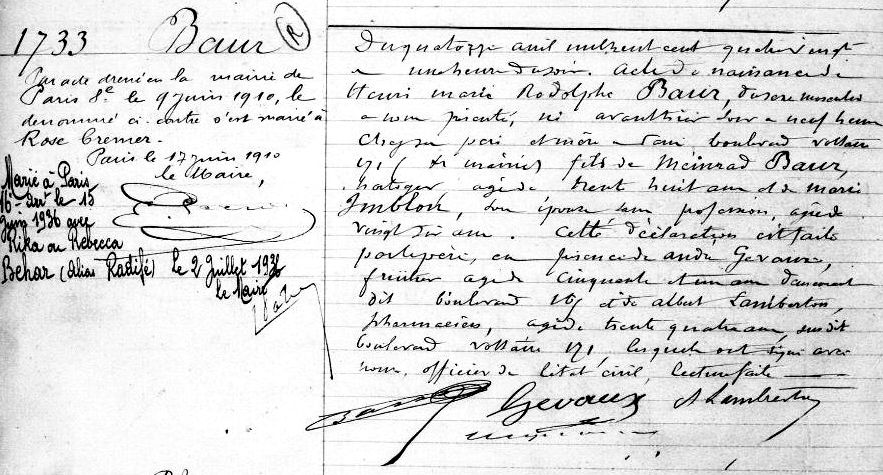 1733 Baur (R)
Par acte dressé en la mairie de
Paris 8e le 9 juin 1910, le
dénommé ci-contre s'est marié à
Rose Cremer.
Paris le 17 juin 1910
le Maire,
Marié à Paris
16e arrt le 15
Juin 1936 avec
Rika ou Rebecca
Behar (alias Radifé) le 2 Juillet 1936
le Maire
Du quatorze avril mil huit cent quatre vingt
à une heure du soir. Acte de naissance de
Henri Marie Rodolphe Baur, du sexe masculin
à nous présenté, né avant hier soir à neuf heures
chez ses père et mère à Paris boulevard voltaire
171 (                ) fils de Meinrad Baur,
horloger, âgé de trente huit ans et de marie
Imblon, son épouse sans profession, âgée de
vingt six ans. Cette déclaration est faite
par le père, en présence de André Gevaux,
fruitier âgé de cinquante et un ans demeurant
dit boulevard 165 et de Albert Lamberton,
pharmacien, âgé de trente quatre ans, susdit
boulevard voltaire 171, lesquels ont signé avec
nous, officier de l'état civil, lecture faite
Gevaux A Lamberton